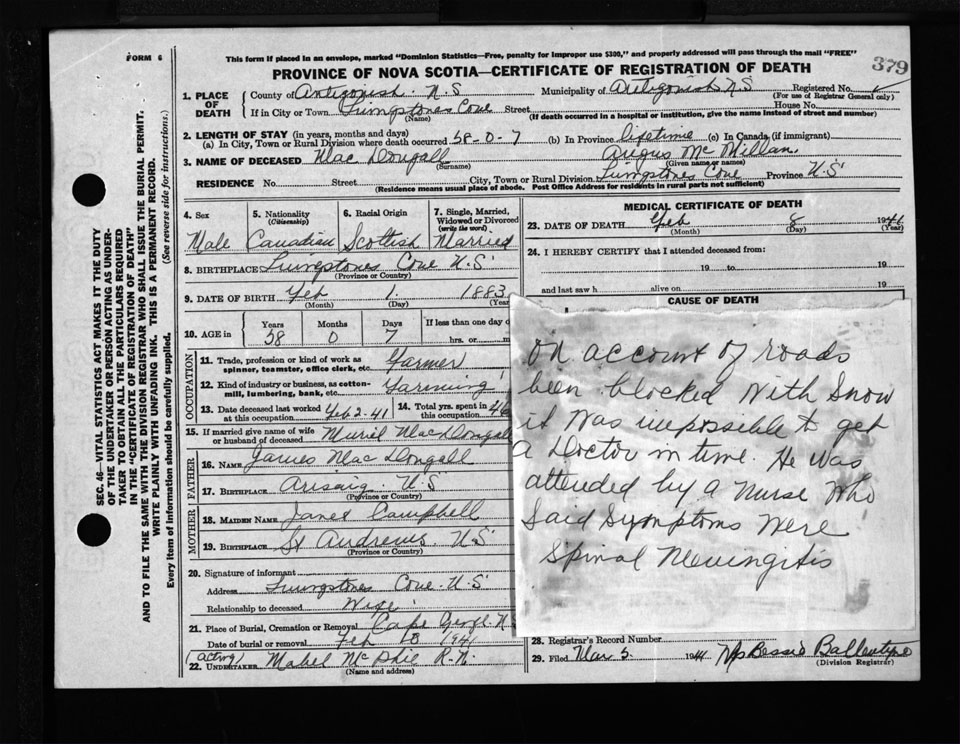 FORM 6
This form if placed in an envelope, marked "Dominion Statistics—Free, penalty for improper use $300," and properly addressed will pass through the mail "FREE"
379
PROVINCE OF NOVA SCOTIA—CERTIFICATE OF REGISTRATION OF DEATH
1. PLACE OF DEATH
County of Antigonish. N.S Municipality of Antigonish N S Registered No.
(For use of Registrar General only)
If in City or Town Livingstones Cove Street House No.
(Name) (If death occurred in a hospital or institution, give the name instead of street and number)
2. LENGTH OF STAY (in years, months and days)
(a) In City, Town or Rural Division where death occurred 58-0-7 (b) In Province lifetime (c) In Canada (if immigrant)
3. NAME OF DECEASED Mac Dougall Angus Mc Millan.
(Surname) (Given name or names)
RESIDENCE No. Street City, Town or Rural Division Livingstones Cove Province N.S
(Residence means usual place of abode. Post Office Address for residents in rural parts not sufficient)
4. Sex Male
5. Nationality (Citizenship) Canadian
6. Racial Origin Scottish
7. Single, Married, Widowed or Divorced (write the word) Married
8. BIRTHPLACE Livingstones Cove N.S
(Province or Country)
9. DATE OF BIRTH Feb 1. 1883
(Month) (Day) (Year
10. AGE in Years 58 Months 0 Days 7 If less than one day
hrs. or
OCCUPATION
11. Trade, profession or kind of work as spinner, teamster, office clerk, etc. Farmer
12. Kind of industry or business, as cotton-mill, lumbering, bank, etc. Farming
13. Date deceased last worked at this occupation Feb 2-41 14. Total yrs. spent in this occupation 46
15. If married give name of wife or husband of deceased Muriel MacDougall
FATHER
16. NAME James Mac Dougall
17. BIRTHPLACE Arisaig. N.S
(Province or Country)
MOTHER
18. MAIDEN NAME Janet Campbell
19. BIRTHPLACE St Andrews. N.S
(Province or Country)
20. Signature of informant
Address Livingstones Cove. N.S
Relationship to deceased Wife
21. Place of Burial, Cremation or Removal Cape George. N.S
Date of burial or removal Feb 10 1941
(acting)
22. UNDERTAKER Mabel McPhie R.N.
(Name and address)
MEDICAL CERTIFICATE OF DEATH
23. DATE OF DEATH Feb 8 1941
(Month) (Day) (Year)
24. I HEREBY CERTIFY that I attended deceased from:
19 to 19
and last saw h alive on 19
CAUSE OF DEATH
On account of roads
been blocked with snow
it was impossible to get
a Doctor in time. He was
attended by a Nurse who
said symptoms were
Spinal Meningitis
28. Registrar's Record Number
29. Filed Mar 5. 1941 Mrs Bessie Ballentyne
(Division Registrar)
SEC. 46—VITAL STATISTICS ACT MAKES IT THE DUTY
OF THE UNDERTAKER OR PERSON ACTING AS UNDER-
TAKER TO OBTAIN ALL THE PARTICULARS REQUIRED
IN THE "CERTIFICATE OF REGISTRATION OF DEATH"
AND TO FILE THE SAME WITH THE DIVISION REGISTRAR WHO SHALL ISSUE THE BURIAL PERMIT.
WRITE PLAINLY WITH UNFADING INK. THIS IS A PERMANENT RECORD.
Every item of information should be carefully supplied. (See reverse side for instructions.)